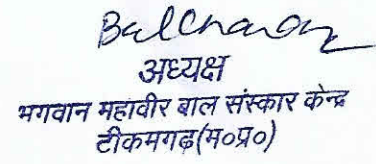 अध्यक्ष
भगवान महावीर बाल संस्कार केन्द्र
टीकमगढ़(म०प्र०)